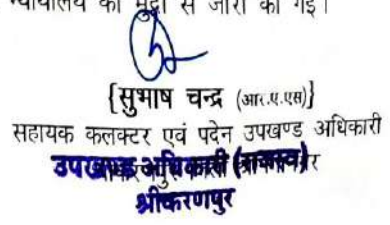 न्यायालय की मुद्रा से जारी की गई।
{सुभाष चन्द्र (आर.ए.एस)}
सहायक कलक्टर एवं पदेन उपखण्ड अधिकारी
उपखण्ड अधिकारी (राजस्व)
श्रीकरणपुर